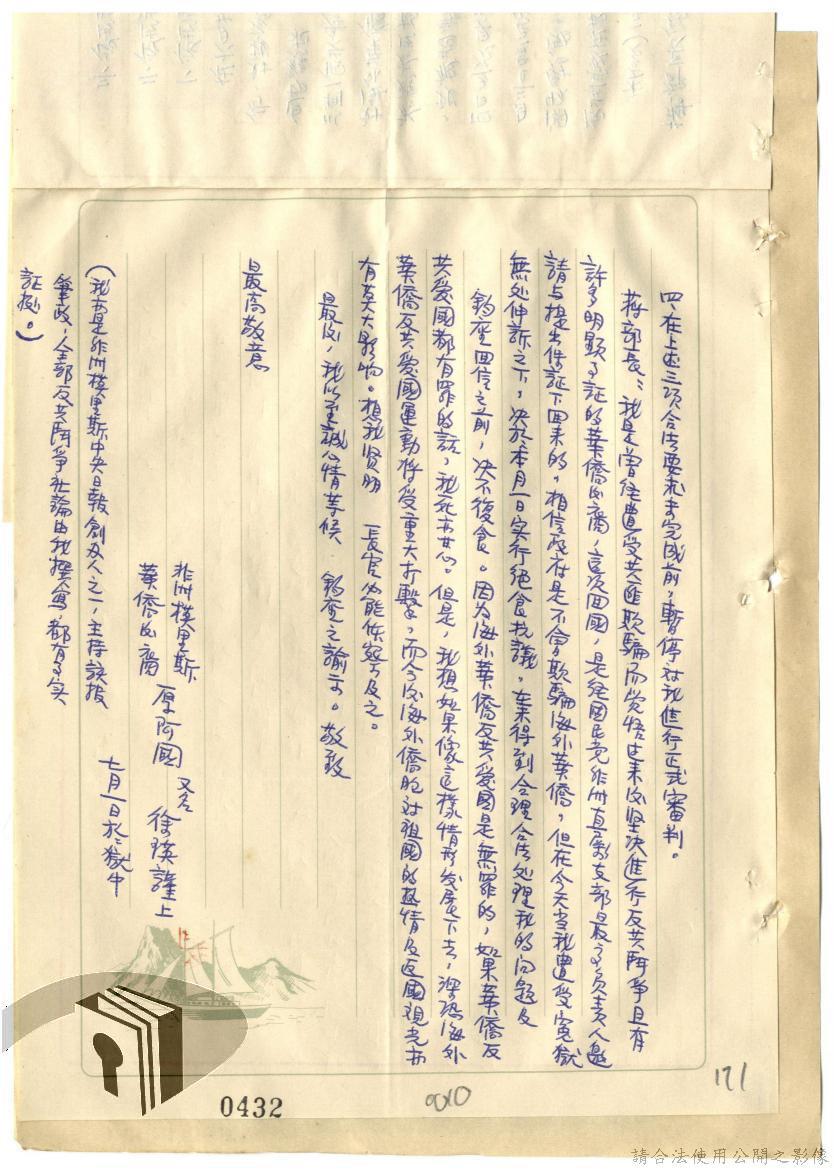 四、在上述三項合法要求未完成前,暫停对我進行正式審判。
蔣部長:我是曾经遭受共匪欺騙而觉悟过来後坚决進行反共鬥爭且有
許多明顯事証的華僑後裔,這次回國,是经國民党非洲直屬支部最高负责人邀
請与提出保証下回来的,相信政府是不會欺騙海外華僑,但在今天当我遭受寃獄
無处伸訴之下,决於本月一日实行絕食抗議,未得到合理合法处理我的问题及
鈞座回信之前,决不復食。因为海外華僑反共愛國是無罪的,如果華僑反
共愛國都有罪的話,我死亦甘心。但是,我想如果像這樣情形发展下去,深恐海外
華僑反共愛國運動將受重大打擊,而今後海外僑胞对祖國的热情及返國观光亦
有莫大影响。想我贤明 長官必能体察及之。
最後,我以至誠心情等候 鈞座之諭示。敬致
最高敬意
非洲模里斯
華僑後裔 厚阿國 又名 徐瑛謹上
七月一日於獄中
(我亦是非洲模里斯中央日報創办人之一,主持該报
筆政,全部反共鬥爭社論由我撰寫,都有事实
証据。)
0432
0010
171
請合法使用公開之影像